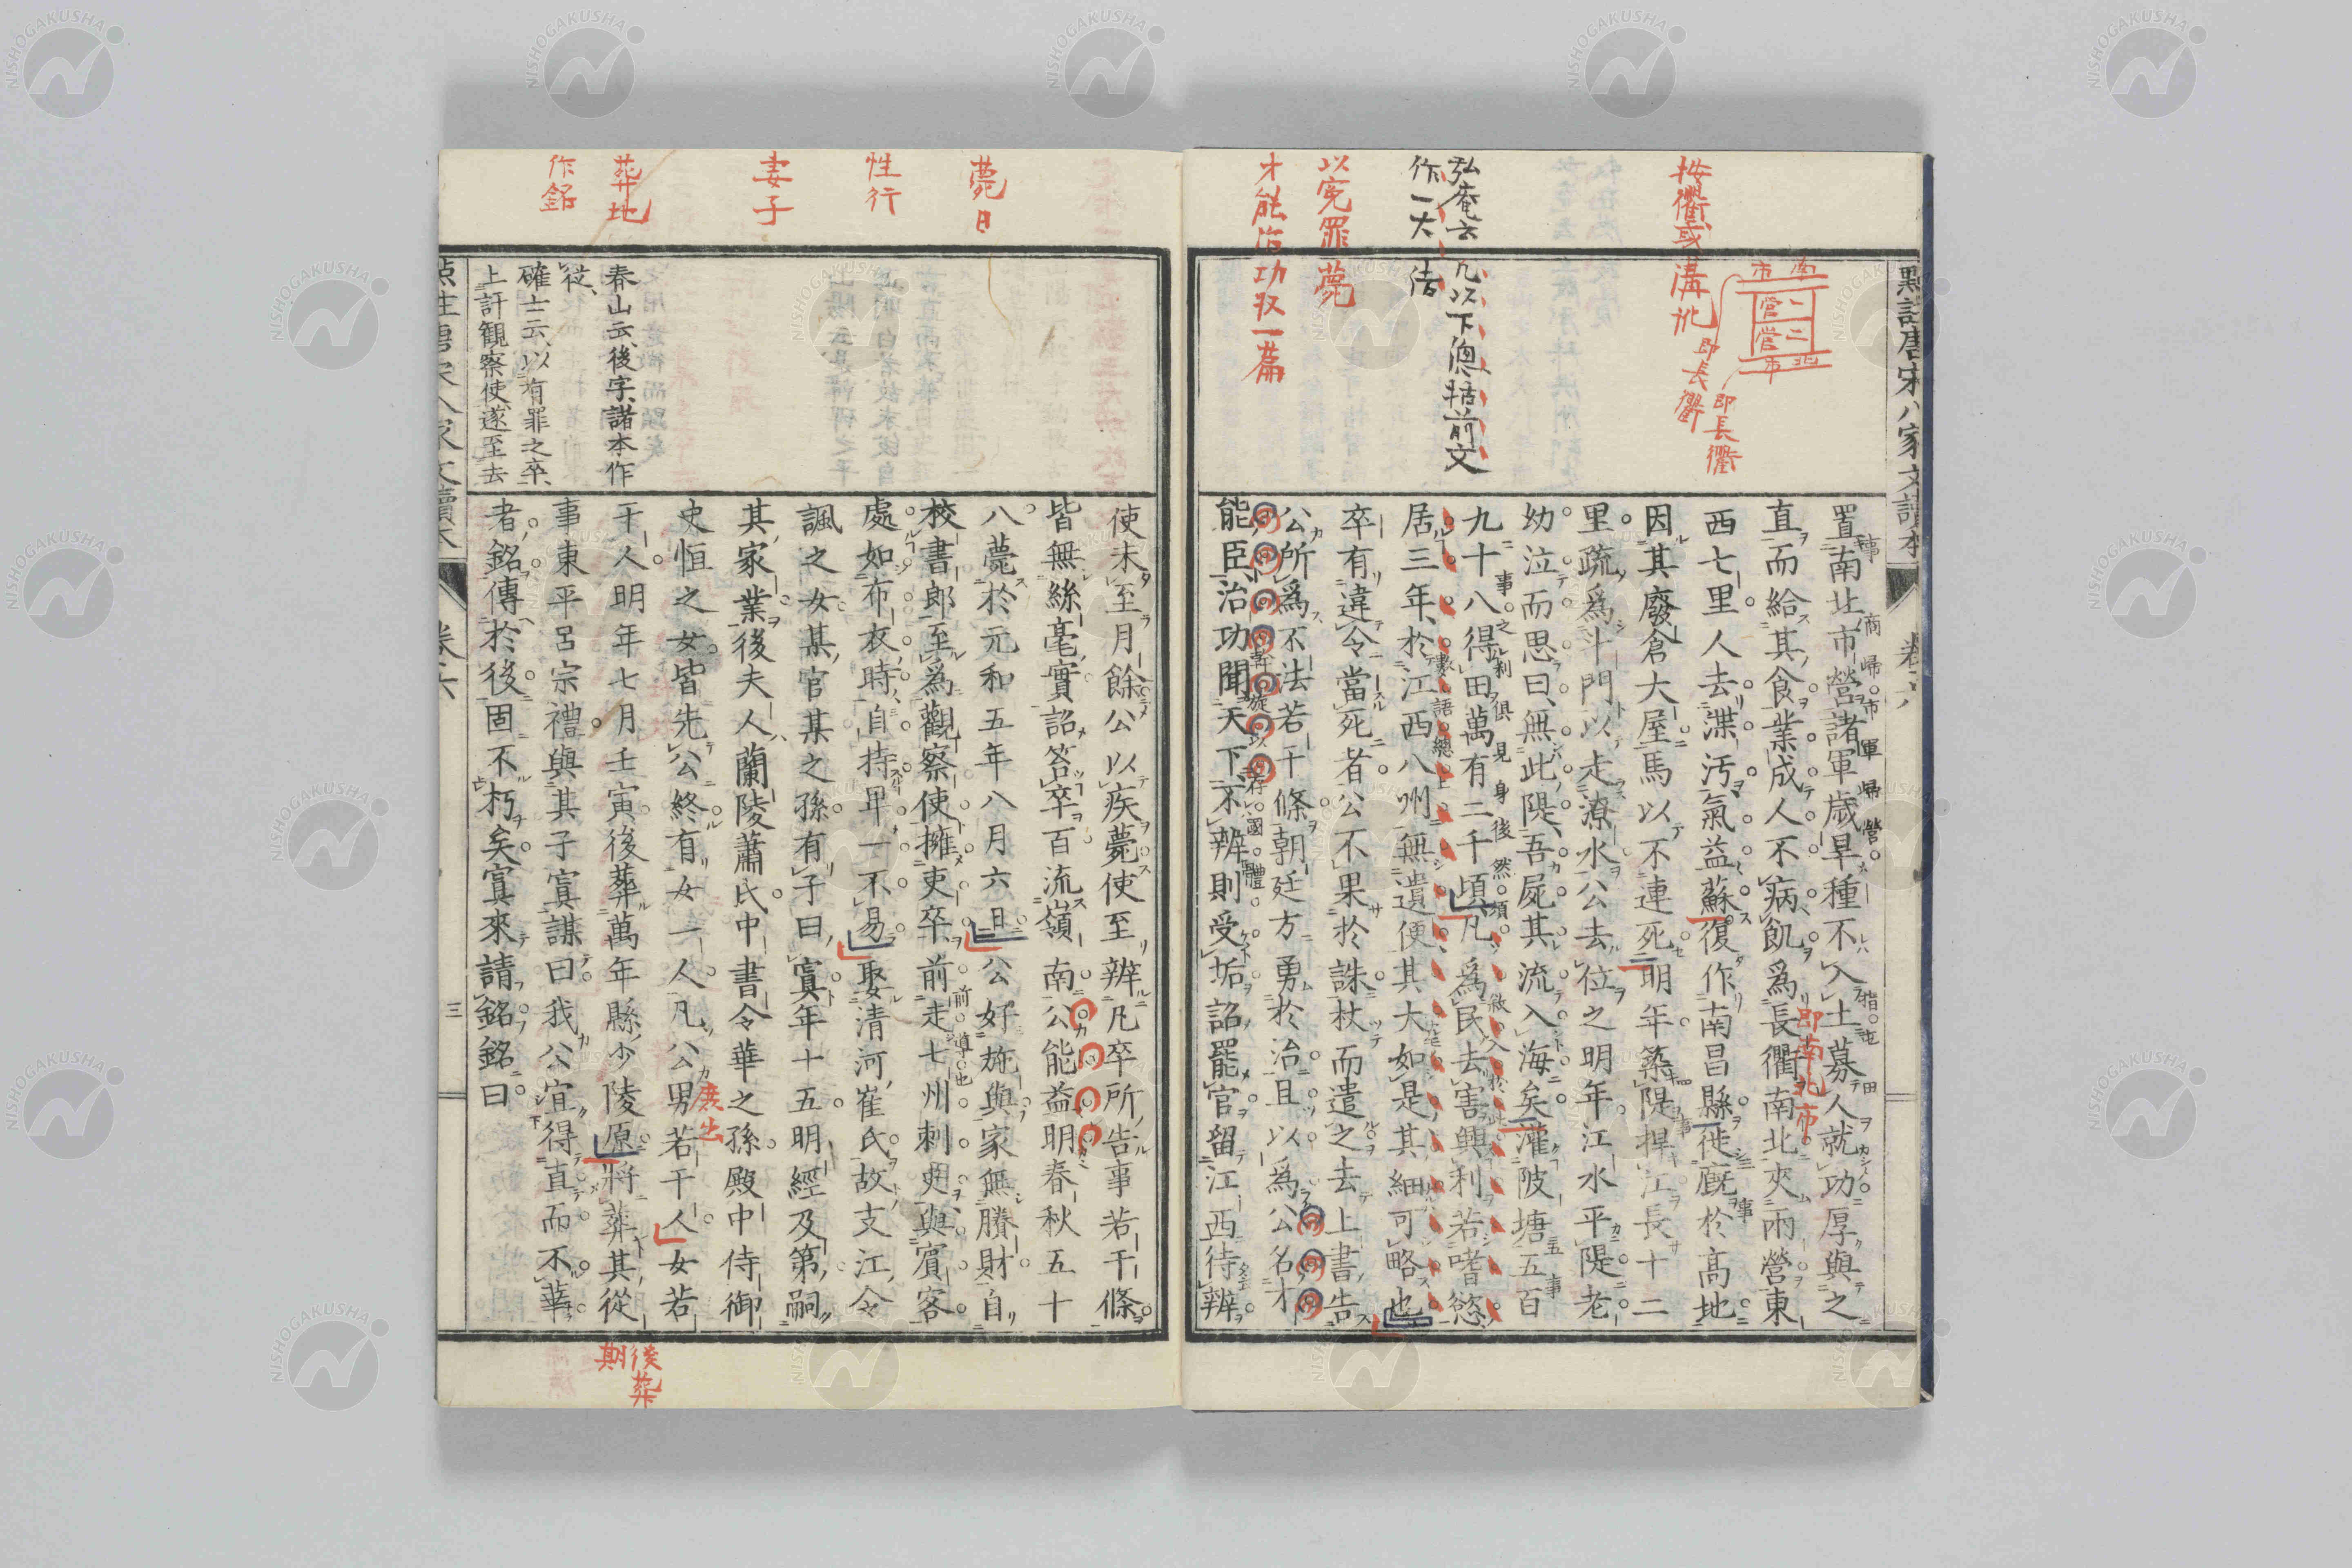 點註唐宋八家文讀本
置南北市營諸軍歳旱種不入土募人就功厚與之
直而給其食業成人不病飢爲長衢南北夾兩營東
西七里人去渫汚氣益蘇復作南昌縣徙廐於高地
因其廢倉大屋馬以不連死明年築隄捍江長十二
里疏爲斗門以走潦水公去位之明年江水平隄老
幼泣而思曰無此隄吾屍其流入海矣灌陂塘五百
九十八得田萬有二千頃凡爲民去害興利若嗜慾
居三年於江西八州無遺便其大如是其細可略也
卒有違令當死者公不果於誅杖而遣之去上書告
公所爲不法若干條朝廷方勇於治且以爲公名才
能臣治功聞天下不辨則受垢詔罷官留江西待辨
南市
一營
二營
北市
即長衢
即長衢
即南北市
弘庵云凡以下總括前文
作一大結
以寃罪薨
才能治功双一篇
使未至月餘公以疾薨使至辨凡卒所告事若干條
皆無絲毫實詔笞卒百流嶺南公能益明春秋五十
八薨於元和五年八月六日公好施與家無賸財自
校書郎至爲觀察使擁吏卒前走七州刺吏與賓客
處如布衣時自持卑一不易娶清河崔氏故支江令
諷之女某官某之孫有子曰寘年十五明經及第嗣
其家業後夫人蘭陵蕭氏中書令華之孫殿中侍御
史恒之女皆先公終有女一人凡公男若干人女若
干人明年七月壬寅後葬萬年縣少陵原將葬其從
事東平呂宗禮與其子寘謀曰我公宜得直而不華
者銘傳於後固不朽矣寘來請銘銘曰
薨日
性行
妻子
葬地
作銘
春山云後字諸本作
従
確士云以有罪之卒
上訐観察使遂至去
後葬
期
三
NISHOGAKUSHA